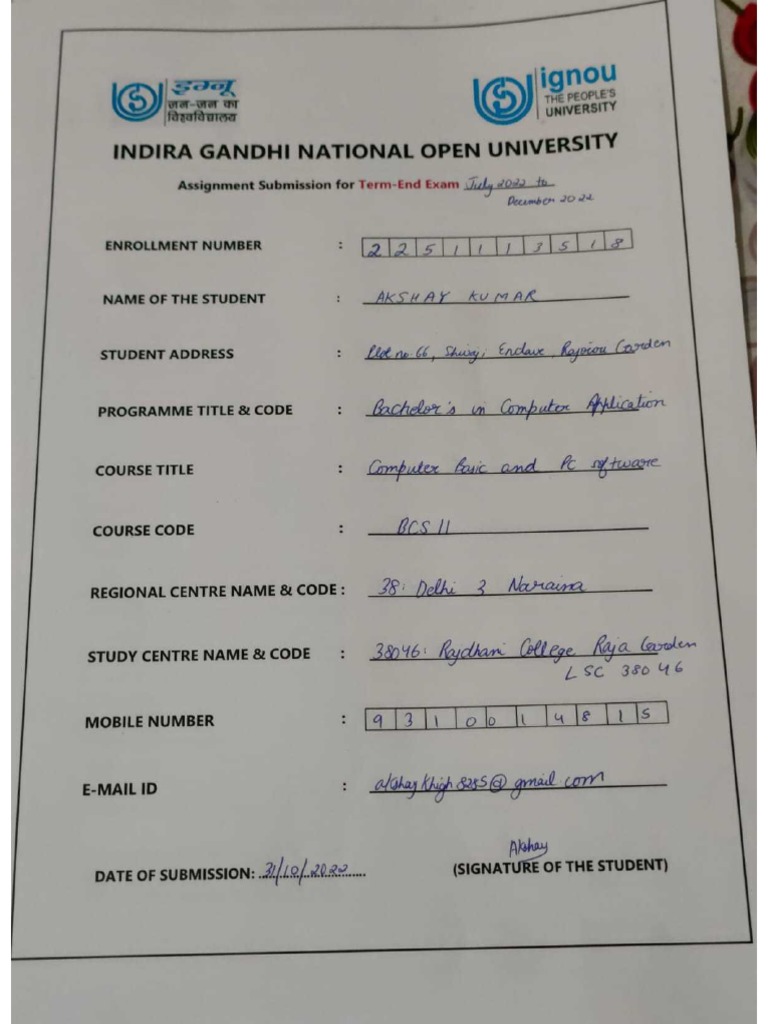 इग्नू
जन-जन का
विश्वविद्यालय
ignou
THE PEOPLE'S
UNIVERSITY
INDIRA GANDHI NATIONAL OPEN UNIVERSITY
Assignment Submission for Term-End Exam July 2022 to
December 2022
ENROLLMENT NUMBER : 2251113518
NAME OF THE STUDENT : AKSHAY KUMAR
STUDENT ADDRESS : Plot no. 66, Enclave, Garden
PROGRAMME TITLE & CODE : Bachelor's in Computer Application
COURSE TITLE : Computer Basic and PC software
COURSE CODE : BCS 11
REGIONAL CENTRE NAME & CODE : 38: Delhi 3 Naraina
STUDY CENTRE NAME & CODE : 38046: Rajdhani College Raja Garden
LSC 38046
MOBILE NUMBER : 9310014815
E-MAIL ID : @gmail.com
Akshay
DATE OF SUBMISSION: 31/10/2022 (SIGNATURE OF THE STUDENT)